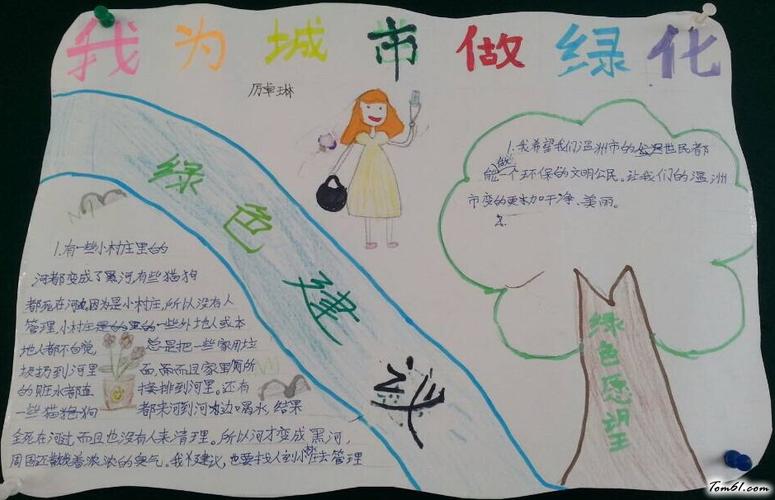 我为城市做绿化
厉卓琳
绿色建议
1.有一些小村庄里的
河都变成了黑河,有些猫狗
都死在河,因为是小村庄,所以没有人
管理,小村庄一些外地人或本
地人都不自觉,总是把一些家用垃
圾扔到河里面,而且家里厕所
的脏水都直接排到河里。还有
一些猫狗都来河到河边喝水,结果
全死在河边,而且也没有人来清理。所以河才变成黑河,
周围还散发着浓浓的臭气。我建议,也要找人到小村去管理
1.我希望我们温州市的世民都
能做一个环保的文明公民。让我们的温州
市变的更加干净、美丽。
绿色愿望
Tom61.com